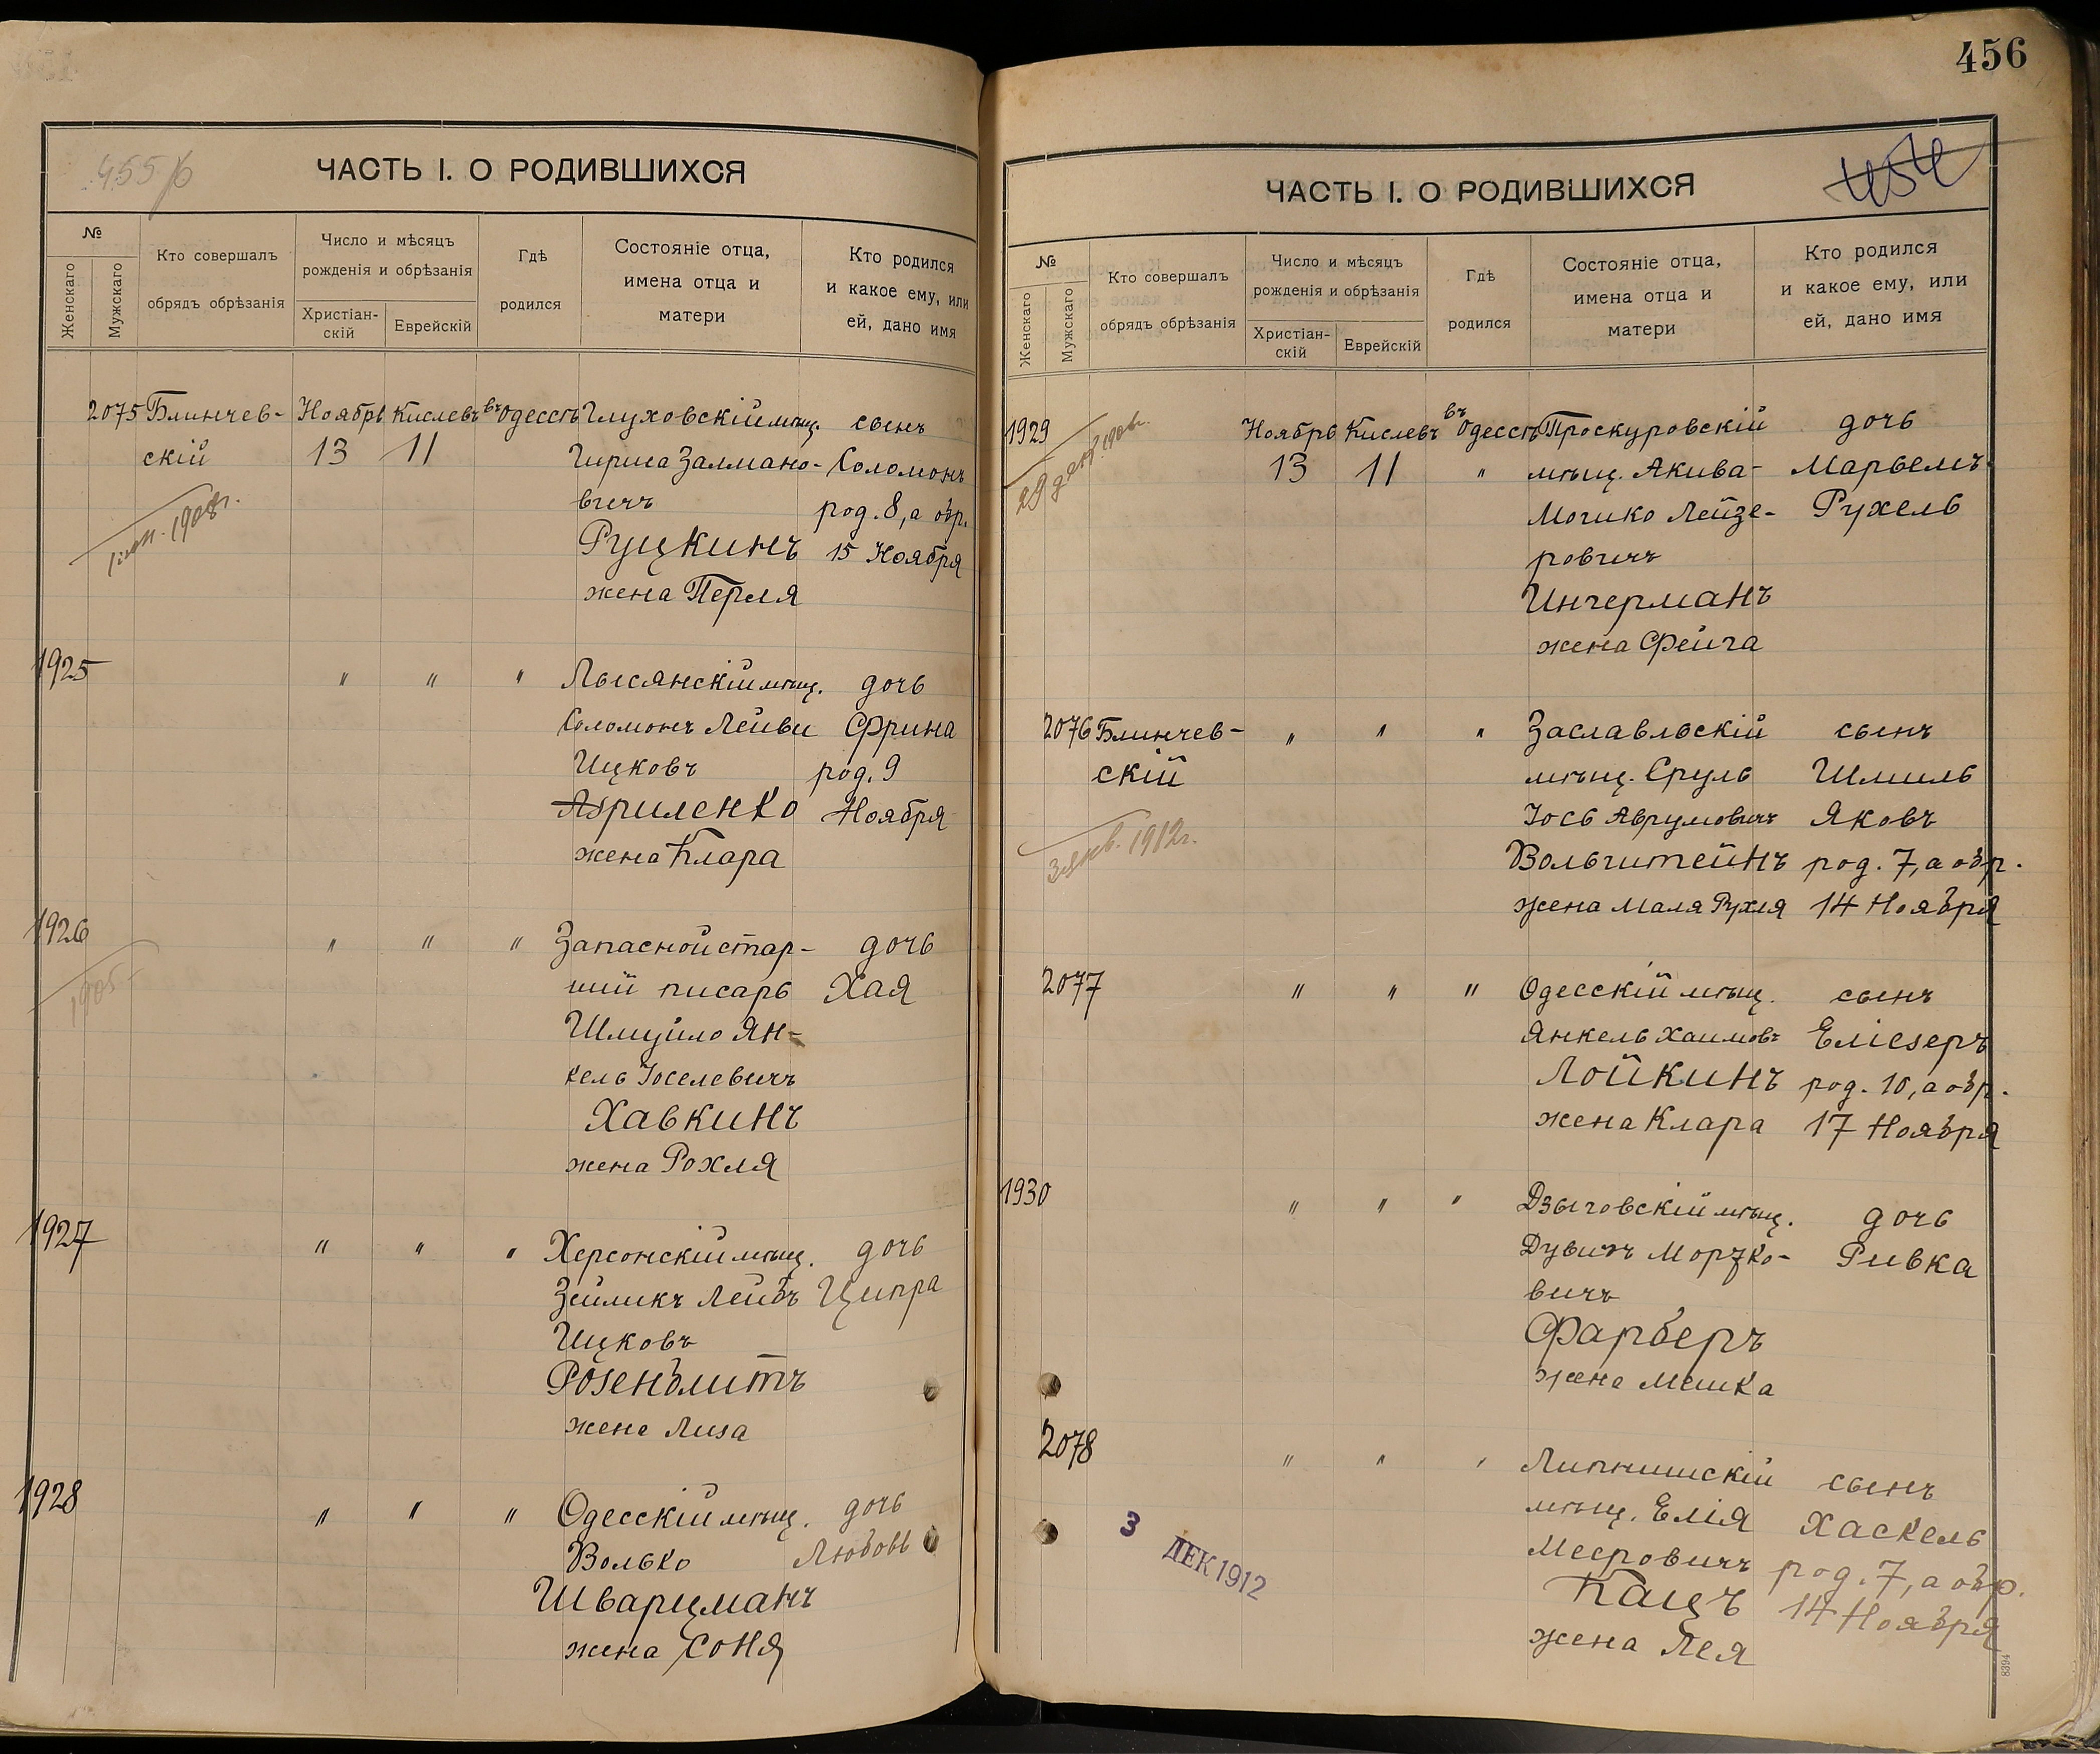 455 б
ЧАСТЬ I. О РОДИВШИХСЯ
№
Женскаго
Мужскаго
Кто совершалъ
обрядъ обрѣзанія
Число и мѣсяцъ
рожденія и обрѣзанія
Христіан-
скій
Еврейскій
Гдѣ
родился
Состояніе отца,
имена отца и
матери
Кто родился
и какое ему, или
ей, дано имя
2075 Блинчев- Ноябрь Кислевъ въ Одессѣ Глуховскій мѣщ. сынъ
скій 13 11 Гирша Залмано- Соломонъ
вичъ род. 8, а обр.
Руцкинъ 15 Ноября
жена Перля
1908г.
1925 " " " Лысянскій мѣщ. дочь
Соломонъ Лейви Фрина
Ицковъ род. 9
Авриленко Ноября
жена Клара
1926 " " " Запасной стар- дочь
шій писарь Хая
Шмуйло Ян-
кель Іоселевичъ
Хавкинъ
жена Рохля
1905
1927 " " " Херсонскій мѣщ. дочь
Зейликъ Лейбъ Ципра
Ицковъ
Розенблитъ
жена Лиза
1928 " " " Одесскій мѣщ. дочь
Волько Любовь
Шварцманъ
жена Соня
456
454
ЧАСТЬ I. О РОДИВШИХСЯ
№
Женскаго
Мужскаго
Кто совершалъ
обрядъ обрѣзанія
Число и мѣсяцъ
рожденія и обрѣзанія
Христіан-
скій
Еврейскій
Гдѣ
родился
Состояніе отца,
имена отца и
матери
Кто родился
и какое ему, или
ей, дано имя
1929 Ноябрь Кислевъ въ Одессѣ Проскуровскій дочь
13 11 " мѣщ. Акива- Марьемъ
Мошко Лейзе- Рухель
ровичъ
Ингерманъ
жена Фейга
2076 Блинчев- " " " Заславльскій сынъ
скій мѣщ. Сруль Шмиль
Іось Аврумовичъ Яковъ
Вольгштейнъ род. 7, а обр.
жена Маля Рухля 14 Ноября
3 янв. 1912г.
2077 " " " Одесскій мѣщ. сынъ
Янкель Хаимовъ Еліезеръ
Лойкинъ род. 10, а обр.
жена Клара 17 Ноября
1930 " " " Дзыговскій мѣщ. дочь
Дувидъ Мордко- Ривка
вичъ
Фарберъ
жена
2078 " " " Липнишскій сынъ
мѣщ. Елія Хаскель
Мееровичъ род. 7, а обр.
Кацъ 14 Ноября
жена Лея
3 ДЕК 1912
8394